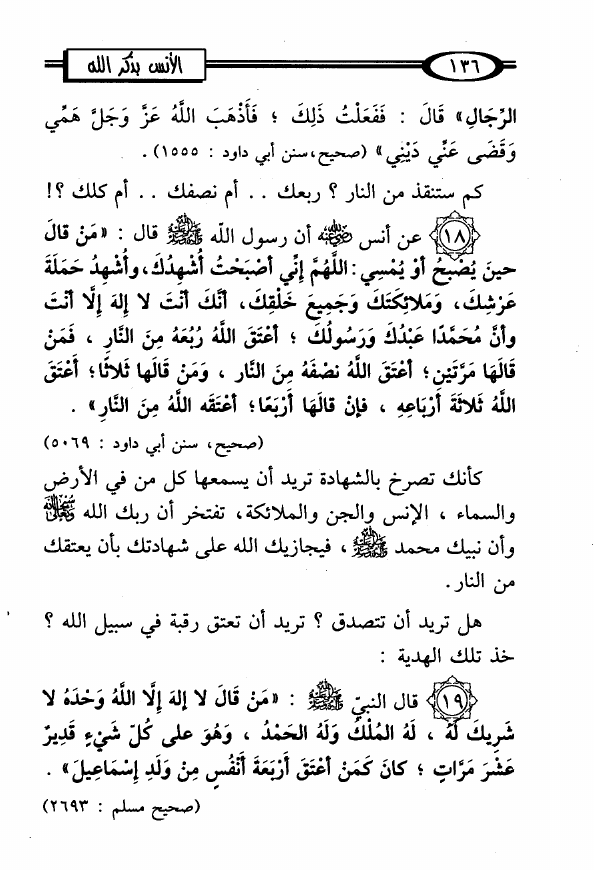 ١٣٦ الأنس بذكر الله
الرِّجَالِ» قَالَ : فَفَعَلْتُ ذَلِكَ ؛ فَأَذْهَبَ اللَّهُ عَزَّ وَجَلَّ هَمِّي
وَقَضَى عَنِّي دَيْنِي» (صحيح،سنن أبي داود : ١٥٥٥).
كم ستنقذ من النار ؟ ربعك .. أم نصفك .. أم كلك ؟!
١٨ عن أنس رضي الله عنه أن رسول الله ﷺ قال : «مَنْ قالَ
حينَ يُصْبِحُ أَوْ يُمْسِي: اللَّهُمَّ إِنِّي أَصْبَحْتُ أُشْهِدُكَ،وأُشْهِدُ حَمَلَةَ
عَرْشِكَ ، وَمَلائِكَتَكَ وَجَمِيعَ خَلْقِكَ، أَنَّكَ أَنْتَ لا إِلهَ إِلَّا أَنْتَ
وأنَّ مُحَمَّدًا عَبْدُكَ وَرَسُولُكَ ؛ أعْتَقَ اللَّهُ رُبُعَهُ مِنَ النَّارِ ، فَمَنْ
قالَهَا مَرَّتَيْنِ؛ أعْتَقَ اللَّهُ نصْفَهُ مِنَ النَّار ، وَمَنْ قَالَها ثَلاثًا؛ أَعْتَقَ
اللَّهُ ثَلاثَةَ أَرْبَاعِهِ ، فإنْ قالَهَا أَرْبَعًا؛ أعْتَقَه اللَّهُ مِنَ النَّارِ» .
(صحيح، سنن أبي داود : ٥٠٦٩)
كأنك تصرخ بالشهادة تريد أن يسمعها كل من في الأرض
والسماء ، الإنس والجن والملائكة، تفتخر أن ربك الله سبحانه وتعالى
وأن نبيك محمد ﷺ ، فيجازيك الله على شهادتك بأن يعتقك
من النار.
هل تريد أن تتصدق ؟ تريد أن تعتق رقبة في سبيل الله ؟
خذ تلك الهدية :
١٩ قال النبيّ ﷺ : «مَنْ قَالَ لا إلهَ إِلَّا اللَّهُ وَحْدَهُ لا
شَرِيكَ لَهُ ، لَهُ المُلْكُ وَلَهُ الحَمْدُ ، وَهُوَ على كُلّ شَيْءٍ قَدِيرٌ
عَشْرَ مَرَّاتٍ ؛ كانَ كَمَنْ أَعْتَقَ أَرْبَعَةَ أَنْفُسٍ مِنْ وَلَدِ إِسْمَاعِيلَ» .
(صحيح مسلم : ٢٦٩٣)